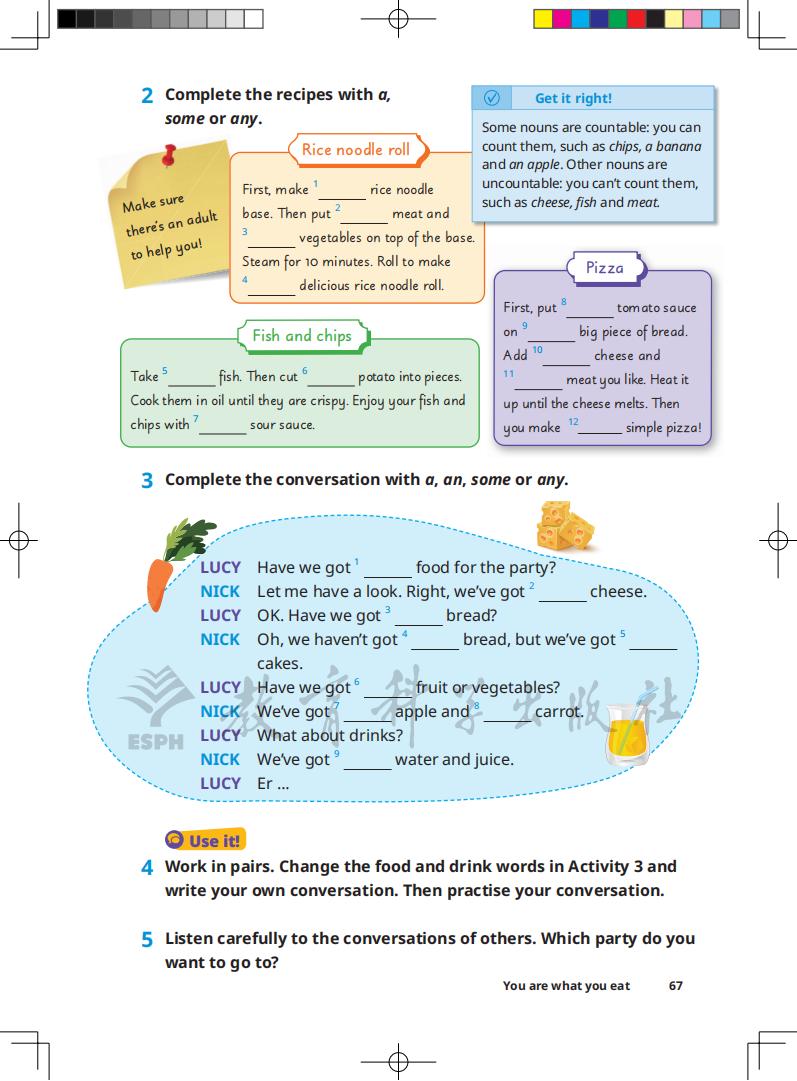 2 Complete the recipes with a,
some or any.
Get it right!
Some nouns are countable: you can
count them, such as chips, a banana
and an apple. Other nouns are
uncountable: you can't count them,
such as cheese, fish and meat.
Make sure
there's an adult
to help you!
Rice noodle roll
First, make 1______ rice noodle
base. Then put 2______ meat and
3______ vegetables on top of the base.
Steam for 10 minutes. Roll to make
4______ delicious rice noodle roll.
Pizza
First, put 8______ tomato sauce
on 9______ big piece of bread.
Add 10______ cheese and
11______ meat you like. Heat it
up until the cheese melts. Then
you make 12______ simple pizza!
Fish and chips
Take 5______ fish. Then cut 6______ potato into pieces.
Cook them in oil until they are crispy. Enjoy your fish and
chips with 7______ sour sauce.
3 Complete the conversation with a, an, some or any.
LUCY Have we got 1 ______ food for the party?
NICK Let me have a look. Right, we've got 2 ______ cheese.
LUCY OK. Have we got 3 ______ bread?
NICK Oh, we haven't got 4 ______ bread, but we've got 5 ______
cakes.
LUCY Have we got 6 ______ fruit or vegetables?
NICK We've got 7 ______ apple and 8 ______ carrot.
LUCY What about drinks?
NICK We've got 9 ______ water and juice.
LUCY Er ...
ESPH 教育科学出版社
Use it!
4 Work in pairs. Change the food and drink words in Activity 3 and
write your own conversation. Then practise your conversation.
5 Listen carefully to the conversations of others. Which party do you
want to go to?
You are what you eat 67